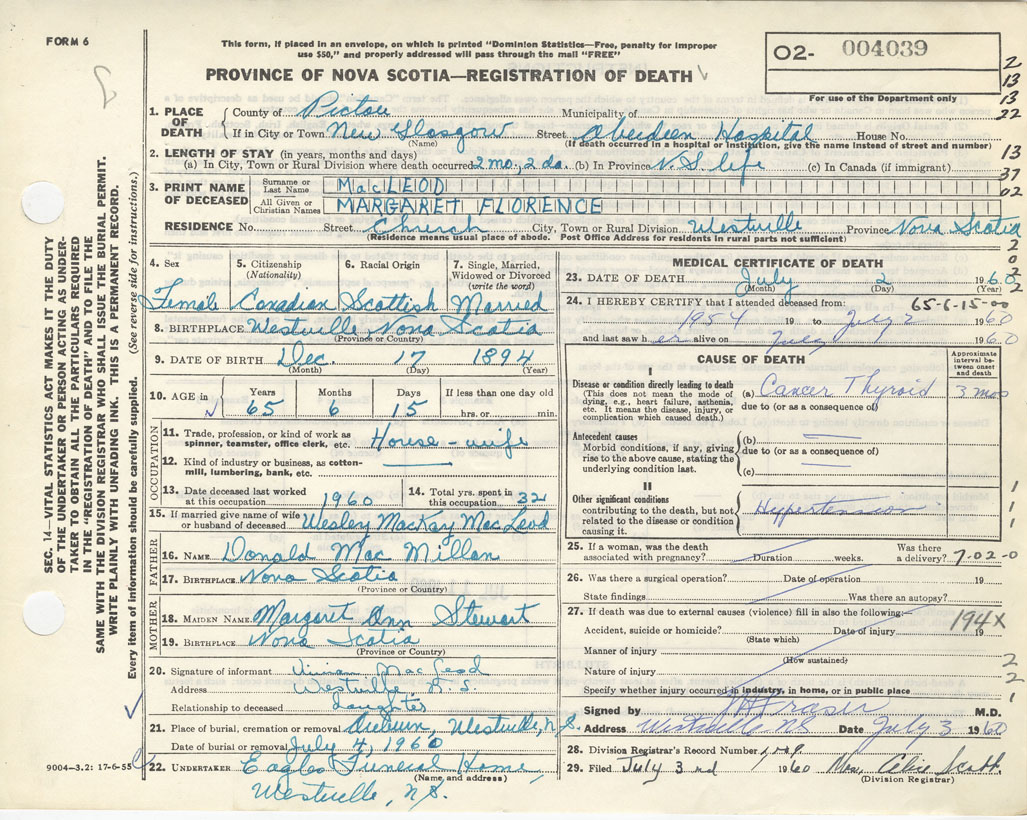 FORM 6
This form, if placed in an envelope, on which is printed "Dominion Statistics—Free, penalty for improper
use $50," and properly addressed will pass through the mail "FREE"
O2- 004039
For use of the Department only
PROVINCE OF NOVA SCOTIA—REGISTRATION OF DEATH
2
13
13
22
13
37
02
2
0
2
2
1. PLACE OF DEATH
County of Pictou Municipality of
If in City or Town New Glasgow Street Aberdeen Hospital House No.
(Name) (If death occurred in a hospital or institution, give the name instead of street and number)
2. LENGTH OF STAY (in years, months and days)
(a) In City, Town or Rural Division where death occurred 2 mo, 2 da. (b) In Province N.S. life (c) In Canada (if immigrant)
3. PRINT NAME OF DECEASED
Surname or Last Name MacLEOD
All Given or Christian Names MARGARET FLORENCE
RESIDENCE No. Street Church City, Town or Rural Division Westville Province Nova Scotia
(Residence means usual place of abode. Post Office Address for residents in rural parts not sufficient)
4. Sex 5. Citizenship (Nationality) 6. Racial Origin 7. Single, Married, Widowed or Divorced (write the word)
Female Canadian Scottish Married
8. BIRTHPLACE Westville Nova Scotia
(Province or Country)
9. DATE OF BIRTH Dec. 17 1894
(Month) (Day) (Year)
10. AGE in Years Months Days If less than one day old
65 6 15 hrs. or min.
OCCUPATION
11. Trade, profession, or kind of work as spinner, teamster, office clerk, etc. House-wife
12. Kind of industry or business, as cotton-mill, lumbering, bank, etc.
13. Date deceased last worked at this occupation 1960 14. Total yrs. spent in this occupation 32
15. If married give name of wife or husband of deceased Wesley MacKay MacLeod
FATHER
16. NAME Donald MacMillan
17. BIRTHPLACE Nova Scotia
(Province or Country)
MOTHER
18. MAIDEN NAME Margaret Ann Stewart
19. BIRTHPLACE Nova Scotia
(Province or Country)
20. Signature of informant Vivian MacLeod
Address Westville, N.S.
Relationship to deceased daughter
21. Place of burial, cremation or removal Auburn, Westville, N.S.
Date of burial or removal July 4, 1960
22. UNDERTAKER Eagles Funeral Home,
(Name and address)
Westville, N.S.
MEDICAL CERTIFICATE OF DEATH
23. DATE OF DEATH July 2 1960
(Month) (Day) (Year)
24. I HEREBY CERTIFY that I attended deceased from: 65-6-15-00
1954 19 to July 2 1960
and last saw her alive on July 1960
CAUSE OF DEATH
Approximate interval between onset and death
I
Disease or condition directly leading to death
(This does not mean the mode of dying, e.g., heart failure, asthenia, etc. It means the disease, injury, or complication which caused death.)
(a) Cancer Thyroid 3 mos
due to (or as a consequence of)
Antecedent causes
Morbid conditions, if any, giving rise to the above cause, stating the underlying condition last.
(b)
due to (or as a consequence of)
(c)
II
Other significant conditions contributing to the death, but not related to the disease or condition causing it.
Hypertension
1
1
1
25. If a woman, was the death associated with pregnancy? Duration weeks. Was there a delivery? 7-02-0
26. Was there a surgical operation? Date of operation 19
State findings Was there an autopsy?
27. If death was due to external causes (violence) fill in also the following:
194X
Accident, suicide or homicide? Date of injury 19
(State which)
Manner of injury
(How sustained)
Nature of injury
Specify whether injury occurred in industry, in home, or in public place
2
2
1
1
Signed by Fraser M.D.
Address Westville NS Date July 3 1960
28. Division Registrar's Record Number
29. Filed July 3rd 1960 Mrs. Alice Scott
(Division Registrar)
SEC. 14—VITAL STATISTICS ACT MAKES IT THE DUTY
OF THE UNDERTAKER OR PERSON ACTING AS UNDER-
TAKER TO OBTAIN ALL THE PARTICULARS REQUIRED
IN THE "REGISTRATION OF DEATH" AND TO FILE THE
SAME WITH THE DIVISION REGISTRAR WHO SHALL ISSUE THE BURIAL PERMIT.
WRITE PLAINLY WITH UNFADING INK. THIS IS A PERMANENT RECORD.
Every item of information should be carefully supplied. (See reverse side for instructions.)
9004-3.2: 17-6-55